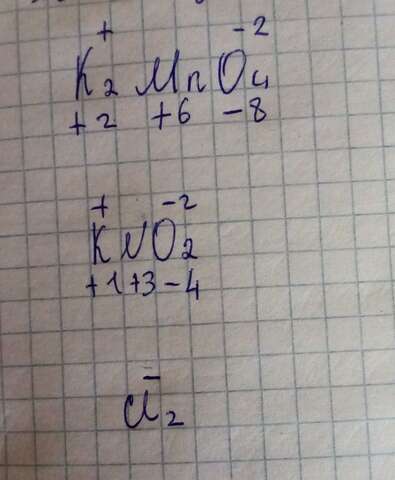 + -2
K2MnO4
+2 +6 -8
+ -2
KNO2
+1+3-4
-
Cl2